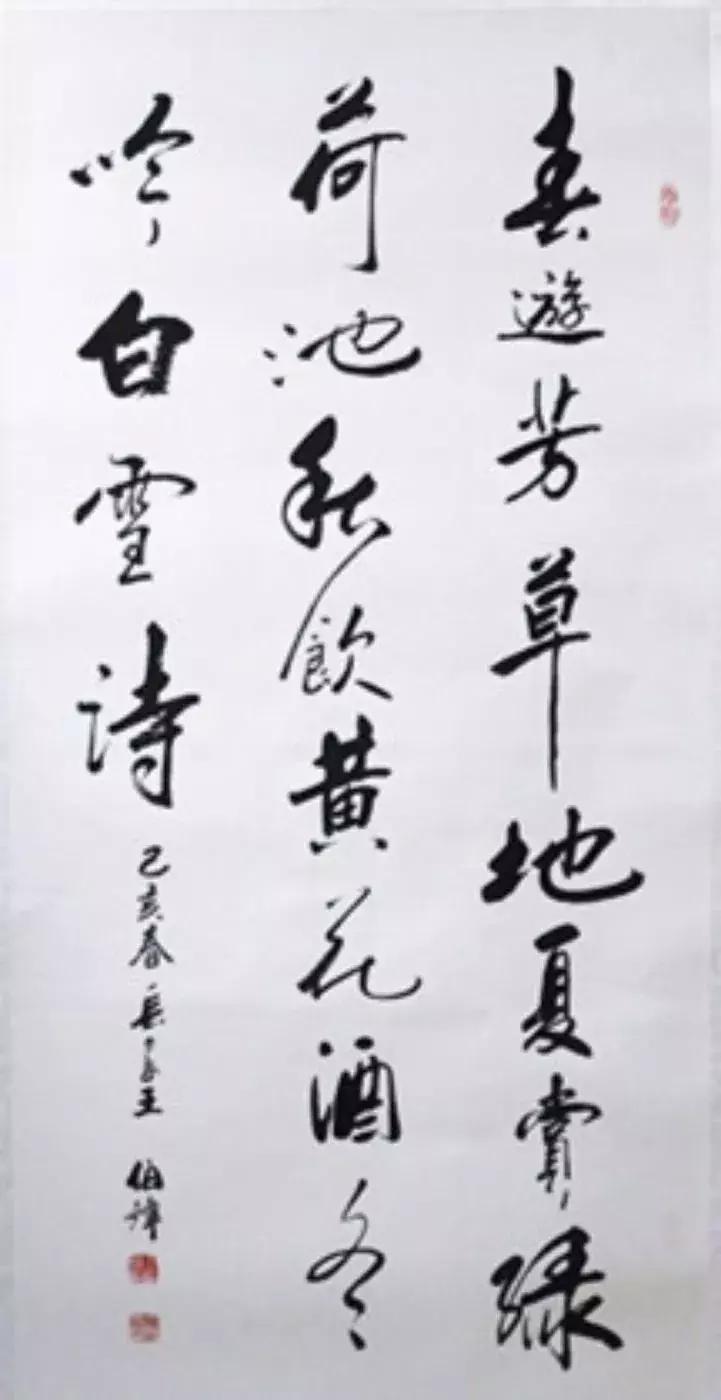 春遊芳草地夏賞綠
荷池秋飲黃花酒冬
吟白雪詩
己亥春 王